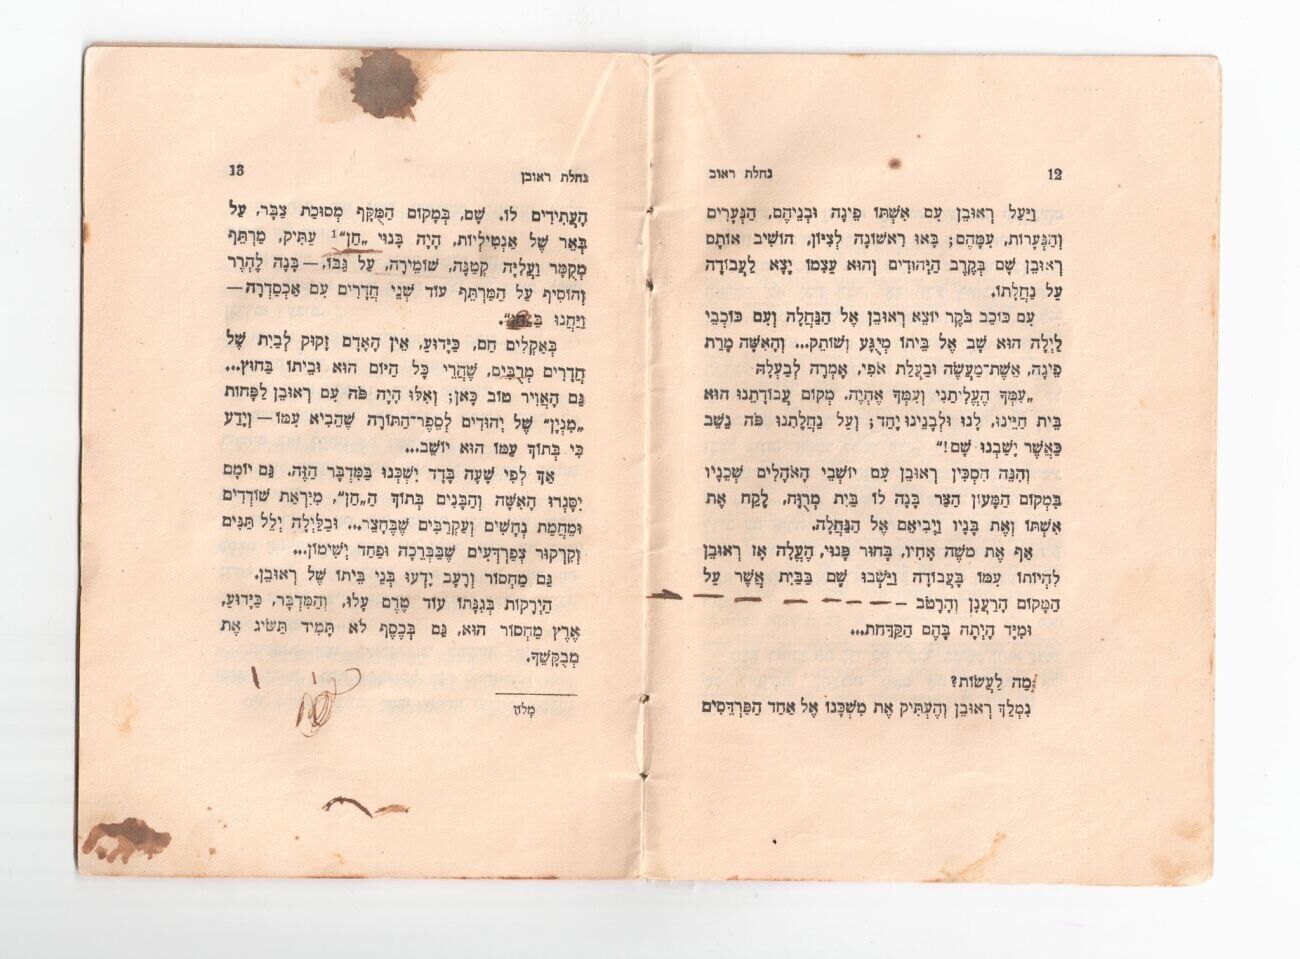 12
נחלת ראוב
וַיַּעַל רְאוּבֵן עִם אִשְׁתּוֹ פֵּיגָה וּבְנֵיהֶם, הַנְּעָרִים
וְהַנְּעָרוֹת, עִמָּהֶם; בָּאוּ רִאשׁוֹנָה לְצִיּוֹן, הוֹשִׁיב אוֹתָם
רְאוּבֵן שָׁם בְּקֶרֶב הַיְּהוּדִים וְהוּא עַצְמוֹ יָצָא לַעֲבוֹדָה
עַל נַחֲלָתוֹ.
עִם כּוֹכַב בֹּקֶר יוֹצֵא רְאוּבֵן אֶל הַנַּחֲלָה וְעִם כּוֹכְבֵי
לַיְלָה הוּא שָׁב אֶל בֵּיתוֹ מְיֻגָּע וְשׁוֹתֵק... וְהָאִשָּׁה מָרַת
פֵיגָה, אֵשֶׁת־מַעֲשֶׂה וּבַעֲלַת אֹפִי, אָמְרָה לְבַעְלָהּ
„עִמְּךָ הֶעֱלִיתַנִי וְעִמְּךָ אֶהְיֶה. מְקוֹם עֲבוֹדָתֵנוּ הוּא
בֵּית חַיֵּינוּ, לָנוּ וּלְבָנֵינוּ יָחַד; וְעַל נַחֲלָתֵנוּ פֹּה נֵשֵׁב
כַּאֲשֶׁר יָשַׁבְנוּ שָׁם!”
וְהִנֵּה הִסְכִּין רְאוּבֵן עִם יוֹשְׁבֵי הָאֹהָלִים שְׁכֵנָיו
בִּמְקוֹם הַמָּעוֹן הַצַּר בָּנָה לוֹ בַּיִת מְרֻוָּח, לָקַח אֶת
אִשְׁתּוֹ וְאֶת בָּנָיו וַיְבִיאֵם אֶל הַנַּחֲלָה.
אַף אֶת מֹשֶׁה אָחִיו, בָּחוּר פָּנוּי, הֶעֱלָה אָז רְאוּבֵן
לִהְיוֹתוֹ עִמּוֹ בָּעֲבוֹדָה וַיֵּשְׁבוּ שָׁם בַּבַּיִת אֲשֶׁר עַל
הַמָּקוֹם הָרַעֲנָן וְהָרָטֹב –
וּמִיָּד הָיְתָה בָּהֶם הַקַּדַּחַת...
מַה לַּעֲשׂוֹת?
נִמְלַךְ רְאוּבֵן וְהֶעְתִּיק אֶת מִשְׁכָּנוֹ אֶל אַחַד הַפַּרְדֵּסִים
נחלת ראובן
13
הָעֲתִידִים לוֹ. שָׁם, בְּמָקוֹם הַמֻּקָּף מְסוּכַת צַבָּר, עַל
בְּאֵר שֶׁל אַנְטִילִיוֹת, הָיָה בָּנוּי „חַן”¹ עַתִּיק, מַרְתֵּף
מְקֻמָּר וַעֲלִיָּה קְטַנָּה, שׁוֹמֵירָה, עַל גַּבּוֹ, – בָּנָה לְהָרֵר
וְהוֹסִיף עַל הַמַּרְתֵּף עוֹד שְׁנֵי חֲדָרִים עִם אַכְסַדְרָה –
וַיַּחֲנוּ בַּ„חַן”.
בְּאַקְלִים חַם, כַּיָּדוּעַ, אֵין הָאָדָם זָקוּק לְבַיִת שֶׁל
חֲדָרִים מְרֻבִּים, שֶׁהֲרֵי כָּל הַיּוֹם הוּא וּבֵיתוֹ בַּחוּץ...
גַּם הָאֲוִיר טוֹב כָּאן; וְאִלּוּ הָיָה פֹּה עִם רְאוּבֵן לְפָחוֹת
„מִנְיָן” שֶׁל יְהוּדִים לְסֵפֶר־הַתּוֹרָה שֶׁהֵבִיא עִמּוֹ – וְיָדַע
כִּי בְּתוֹךְ עַמּוֹ הוּא יוֹשֵׁב...
אַךְ לְפִי שָׁעָה בָּדָד יִשְׁכְּנוּ בַּמִּדְבָּר הַזֶּה. גַּם יוֹמָם
יִסָּגְרוּ הָאִשָּׁה וְהַבָּנִים בְּתוֹךְ הַ„חַן”, מִיִּרְאַת שׁוֹדְדִים
וּמֵחֲמַת נְחָשִׁים וְעַקְרַבִּים שֶׁבֶּחָצֵר... וּבַלַּיְלָה יְלֵל תַּנִּים
וְקִרְקוּר צְפַרְדְּעִים שֶׁבַּבְּרֵכָה וּפַחַד יְשִׁימוֹן...
גַּם מַחְסוֹר וְרָעָב יָדְעוּ בְּנֵי בֵיתוֹ שֶׁל רְאוּבֵן.
הַיְרָקוֹת בְּגִנָּתוֹ עוֹד טֶרֶם עָלוּ, וְהַמִּדְבָּר, כַּיָּדוּעַ,
אֶרֶץ מַחְסוֹר הוּא, גַּם בְּכֶסֶף לֹא תָּמִיד תַּשִּׂיג אֶת
מְבֻקָּשֶׁךָ.
מָלוֹן